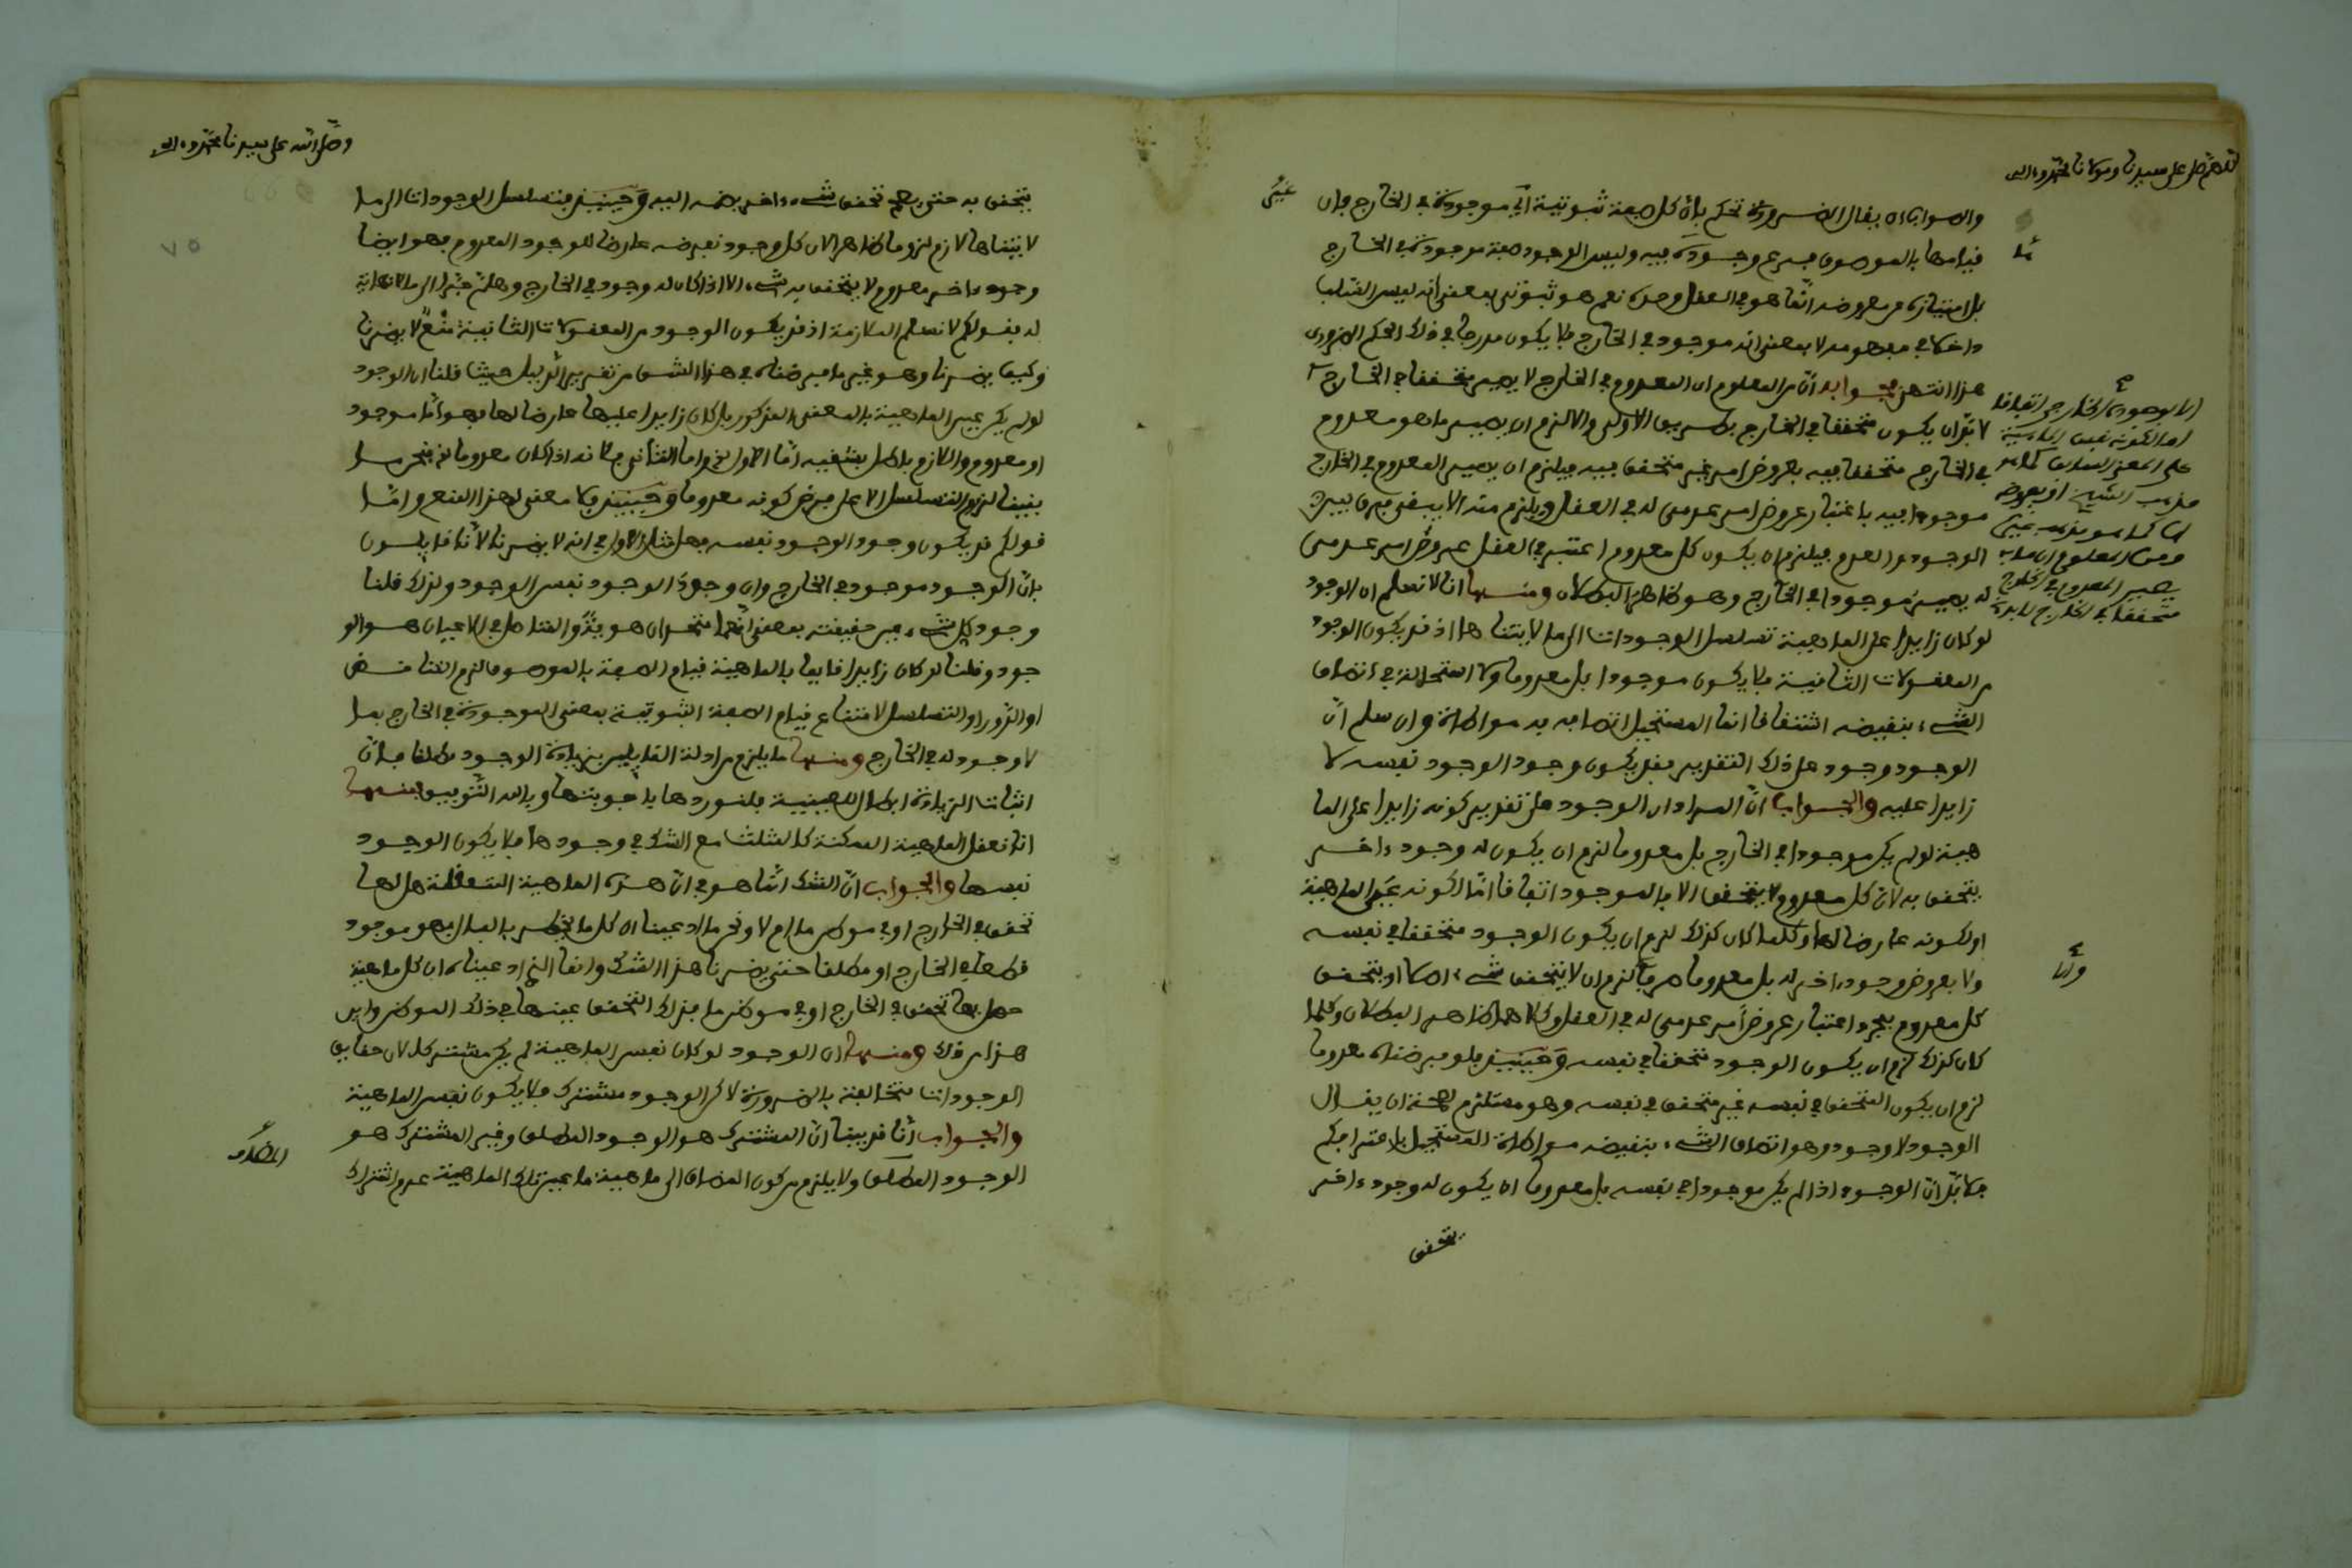 اللهم صل على سيدنا ومولانا محمد وءاله
والصواب ان يقال الضرورة تحكم بان كل صفة ثبوتية اي موجودة في الخارج فان
قيامها بالموصوف فرع وجوده فيه وليس الوجود صفة موجودة في الخارج
بل امتيازه عن معروضه انما هو في العقل وحده نعم هو ثبوتي بمعنى انه ليس السلب
داخلا في مفهومه لا بمعنى انه موجود في الخارج فلا يكون مندرجا في ذلك الحكم الضروري
هذا انتهى فجوابه ان من المعلوم ان المعدوم في الخارج لا يصير متحققا في الخارج
لا بد ان يكون متحققا في الخارج بطريق الاولى والا لزم ان يصير ما هو معدوم
في الخارج متحققا فيه بعروض امر غير متحقق فيه فيلزم ان يصير المعدوم في الخارج
موجودا فيه باعتبار عروض امر عدمي له في العقل ويلزم منه الا يبقى فرق بين
الوجود والعدم فيلزم ان يكون كل معدوم اعتبر في العقل عروض امر عدمي
له يصير موجودا في الخارج وهو ظاهر البطلان ومنها انا لا نسلم ان الوجود
لو كان زايدا على الماهية تسلسل الوجودات الى ما لا يتناهى اذ قد يكون الوجود
من المعقولات الثانية فلا يكون موجودا بل معدوما ولا استحالة في اتصاف
الشيء بنقيضه اشتقاقا انما المستحيل اتصافه به مواطاة وان سلم ان
الوجود وجود على ذلك التقدير فقد يكون وجود الوجود نفسه لا
زايدا عليه والجواب ان المراد ان الوجود على تقدير كونه زايدا على الما
هية لو لم يكن موجودا في الخارج بل معدوما لزم ان يكون له وجود ءاخر
يتحقق به لان كل معدوم لا يتحقق الا بالموجود اتفاقا اما لكونه عين الماهية
او لكونه عارضا لها وكلما كان كذلك لزم ان يكون الوجود متحققا في نفسه
ولا بعروض وجود ءاخر له بل معدوما صرفا لزم ان لا يتحقق شيء اصلا او يتحقق
كل معدوم بمجرد اعتبار عروض امر عدمي له في العقل وكلاهما ظاهر البطلان وكلما
كان كذلك لزم ان يكون الوجود متحققا في نفسه وحينئذ فلو فرضناه معدوما
لزم ان يكون المتحقق في نفسه غير متحقق في نفسه وهو مستلزم لصحة ان يقال
الوجود لا وجود وهو اتصاف الشيء بنقيضه مواطاة المستحيل باعترافكم
فلا بد ان الوجود اذا لم يكن موجودا في نفسه بل معدوما ان يكون له وجود ءاخر
يتحقق
وصلى الله على سيدنا محمد وءاله
٧٥
يتحقق به حتى يصح تحقق شيء ءاخر بضمه اليه وحينئذ فتسلسل الوجودات الى ما
لا يتناهى لازم لزوما ظاهرا لان كل وجود نفرضه عارضا للوجود المعدوم فهو ايضا
وجود ءاخر معدوم لا يتحقق به الشيء الا اذا كان له وجود في الخارج وهلم جرا الى ما لا نهاية
له فقولكم لا نسلم الملازمة اذ قد يكون الوجود من المعقولات الثانية منع لا يضرنا
وكيف يضرنا وهو غير ما فرضناه في هذا الشق من تقرير الدليل حيث قلنا ان الوجود
لو لم يكن عين الماهية بالمعنى المذكور بل كان زايدا عليها عارضا لها فهو اما موجود
او معدوم واللازم باطل بشقيه اما الاول واما الثاني فلانه اذا كان معدوما نحن ما
بيننا لزوم التسلسل الا على فرض كونه معدوما وحينئذ فلا معنى لهذا المنع واما
قولكم قد يكون وجود الوجود نفسه فهل شان الاول في انه لا يضرنا لانا قايلون
بان الوجود موجود في الخارج وان وجود الوجود نفس الوجود ولذلك قلنا
وجود كل شيء عين حقيقته بمعنى انهما متحدان هوية والحاصل في الاعيان هو الو
جود وقلنا لو كان زايدا قايما بالماهية قيام الصفة بالموصوف لزم التناقض
او الدور او التسلسل لامتناع قيام الصفة الثبوتية بمعنى الموجودة في الخارج بما
لا وجود له في الخارج ومنها ما يلزم من ادلة القايلين بزيادة الوجود مطلقا فان
اثبات الزيادة ابطال للعينية فلنوردها باجوبتها وبالله التوفيق فمنها
انا نعقل الماهية الممكنة كالمثلث مع الشك في وجودها فلا يكون الوجود
نفسها والجواب ان الشك انما هو في ان هذه الماهية المتعقلة هل لها
تحقق في الخارج او في موطن ما ام لا ونحن ما ادعينا ان كل ما يخطر بالبال فهو موجود
قطعا في الخارج او مطلقا حتى يضرنا هذا الشك وانما الذي ادعيناه ان كل ماهية
حصل لها تحقق في الخارج او في موطن ما فذلك التحقق عينها في ذلك الموطن واين
هذا من ذلك ومنها ان الوجود لو كان نفس الماهية لم يكن مشتركا لان حقايق
الوجودات متخالفة بالضرورة لاكن الوجود مشترك فلا يكون نفس الماهية
والجواب انا قد بينا ان المشترك هو الوجود المطلق وغير المشترك هو
الوجود المطلق ولا يلزم من كون المضاف الى ماهية ما عين تلك الماهية عدم اشتراك
المضاف